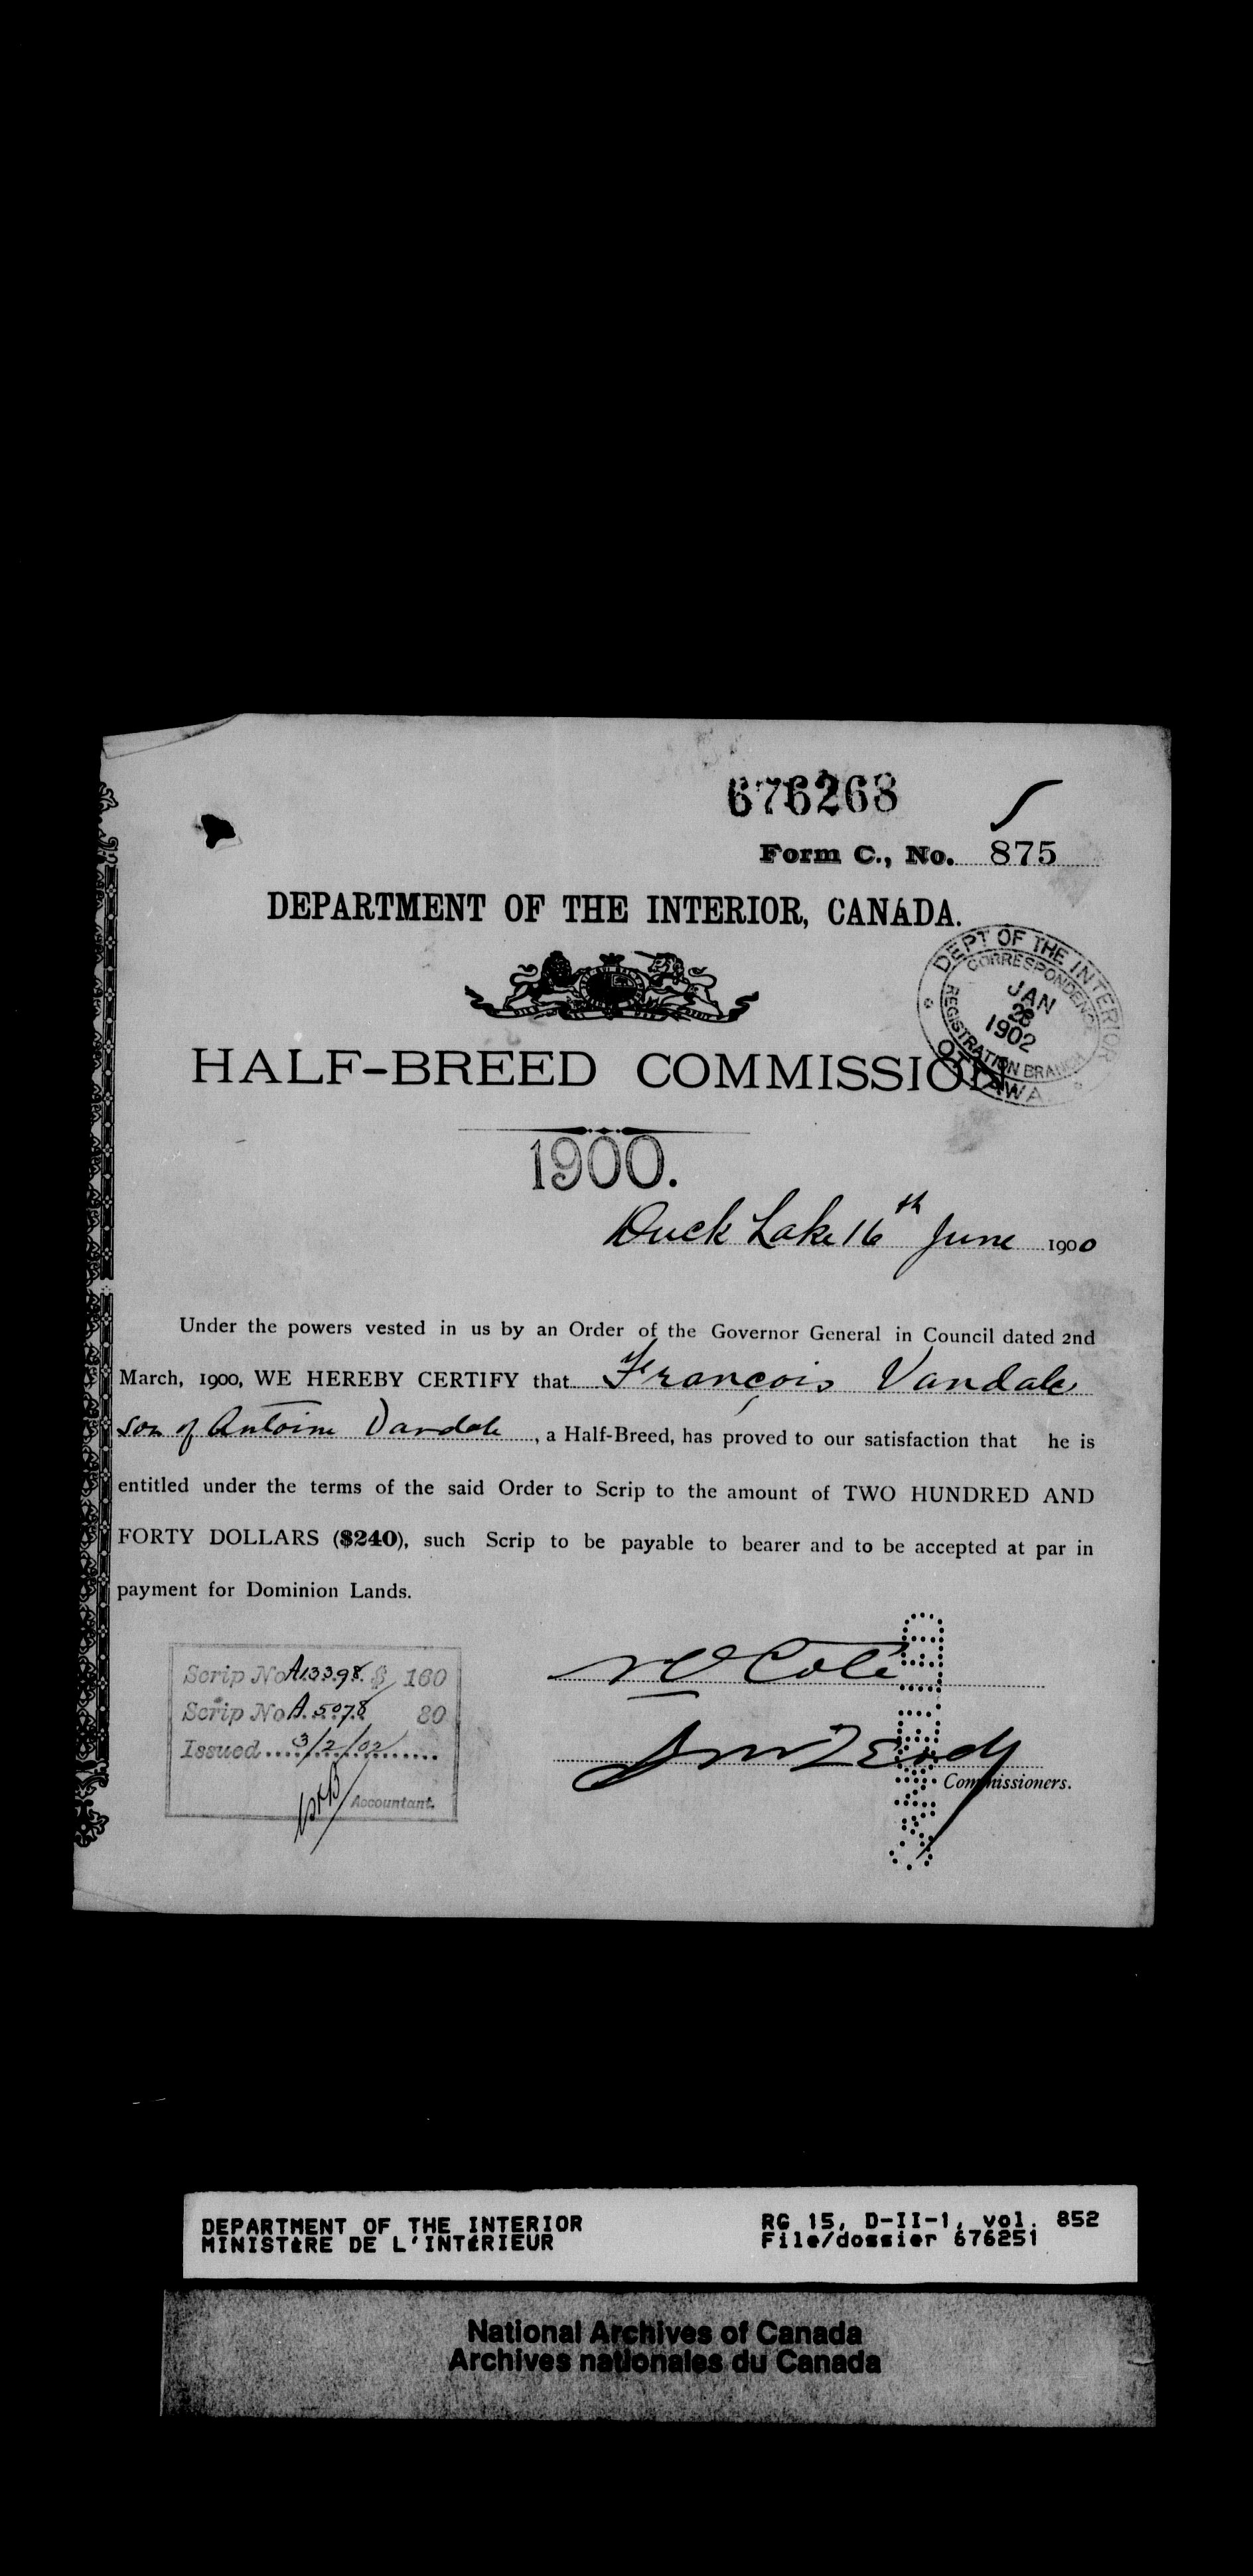 676268
Form C., No. 875
DEPARTMENT OF THE INTERIOR, CANADA.
DEPT OF THE INTERIOR
CORRESPONDENCE
JAN
28
1902
REGISTRATION BRANCH
OTTAWA
HALF-BREED COMMISSION
1900.
Duck Lake 16th June 1900
Under the powers vested in us by an Order of the Governor General in Council dated 2nd
March, 1900, WE HEREBY CERTIFY that François Vandale
son of Antoine Vandale, a Half-Breed, has proved to our satisfaction that he is
entitled under the terms of the said Order to Scrip to the amount of TWO HUNDRED AND
FORTY DOLLARS ($240), such Scrip to be payable to bearer and to be accepted at par in
payment for Dominion Lands.
Scrip No A13398 $ 160
Scrip No A. 5078 80
Issued 3/2/02
Accountant.
Coté
Commissioners.
DEPARTMENT OF THE INTERIOR
MINISTÈRE DE L'INTÉRIEUR
RG 15, D-II-1, vol. 852
File/dossier 676251
National Archives of Canada
Archives nationales du Canada